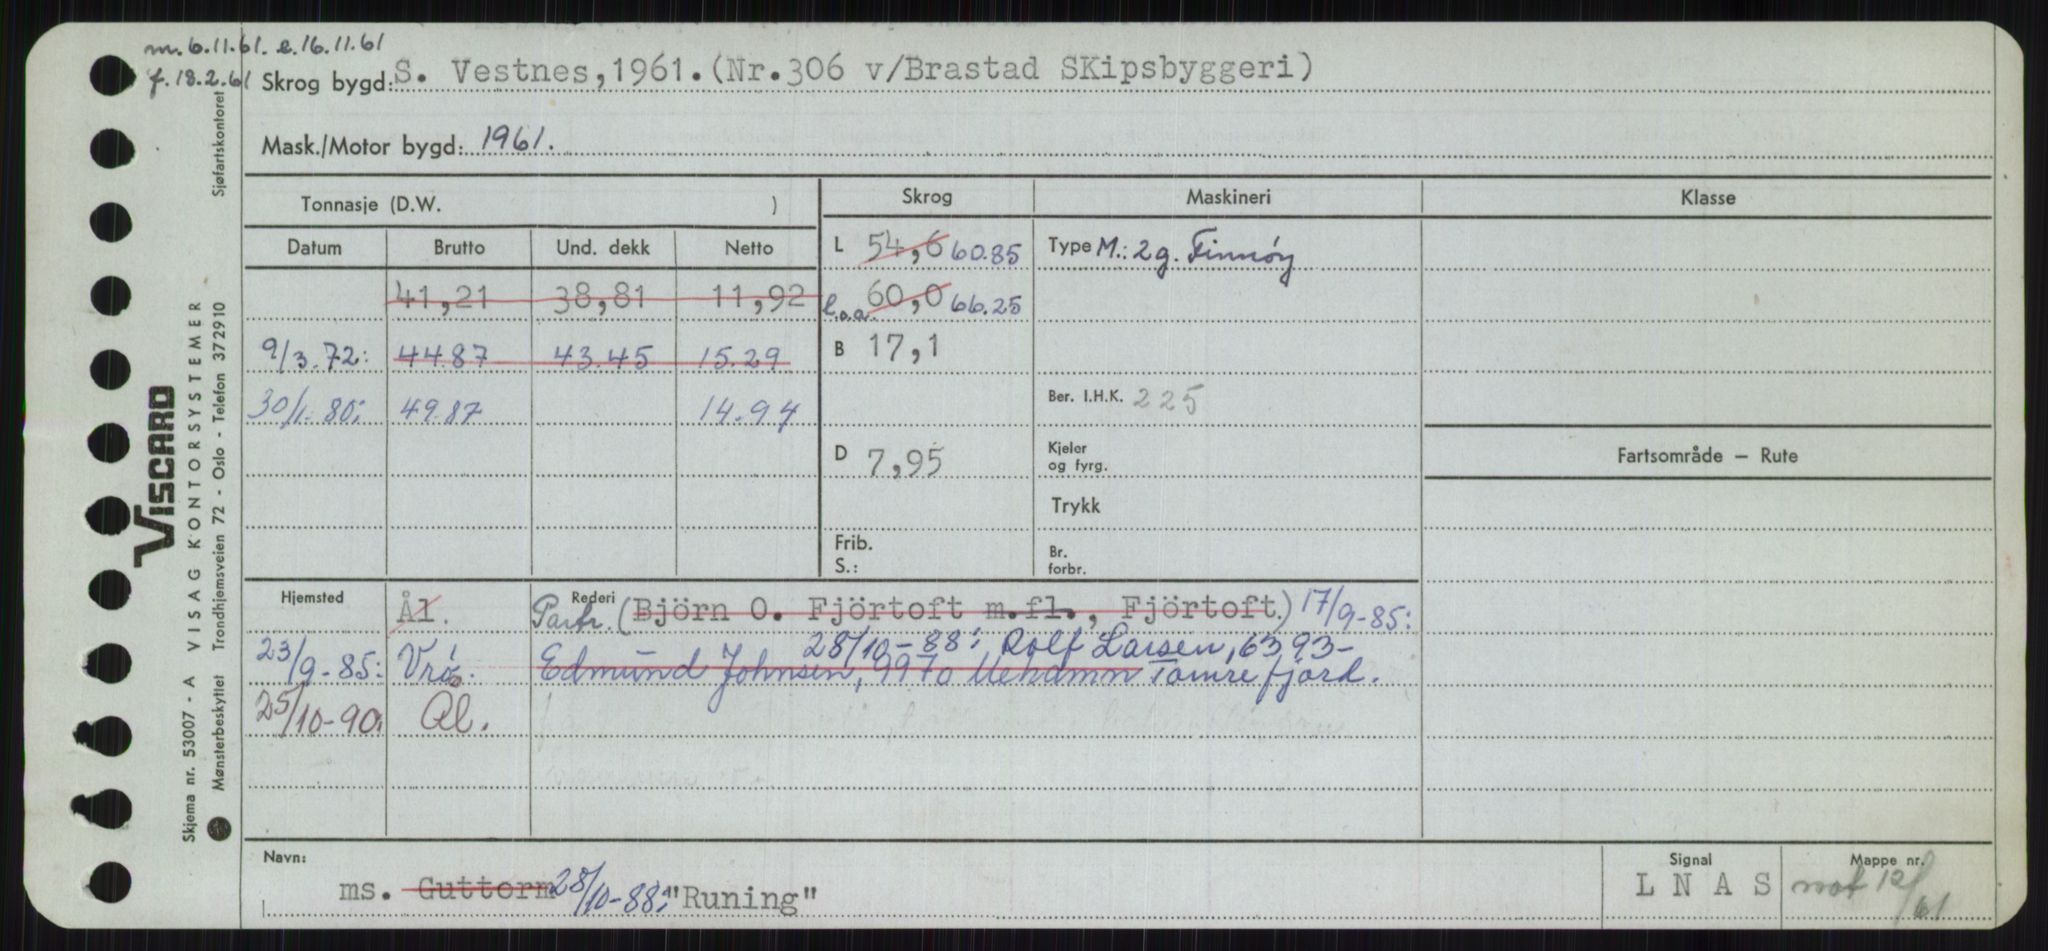 m. 6.11.61. e. 16.11.61
f. 18.2.61
Skrog bygd: S. Vestnes, 1961. (Nr. 306 v/Brastad SKipsbyggeri)
Mask./Motor bygd: 1961.
Tonnasje (D.W. )
Skrog Maskineri Klasse
Datum Brutto Und. dekk Netto
L 54,6 60.85 Type M.: 2g. Finnöy
41,21 38,81 11,92 l.o.a. 60,0 66.25
9/3.72: 44.87 43.45 15.29 B 17,1
30/1.80: 49.87 14.94 Ber. I.H.K. 225
D 7,95 Kjeler
og fyrg.
Fartsområde – Rute
Trykk
Frib.
S.:
Br.
forbr.
Hjemsted Ål. Rederi Partr. (Björn O. Fjörtoft m.fl., Fjörtoft.) 17/9-85:
28/10-88: Rolf Larsen, 6393-
23/9-85: Vrö. Edmund Johnsen, 9970 Mehamn Tomrefjord.
25/10-90: Ål.
Navn:
ms. Guttorm 28/10-88: "Runing"
Signal
L N A S
Mappe nr.
not 12/61
VISCARD
Skjema nr. 53007 - A VISAG KONTORSYSTEMER
Mønsterbeskyttet Trondhjemsveien 72 - Oslo - Telefon 372910
Sjøfartskontoret